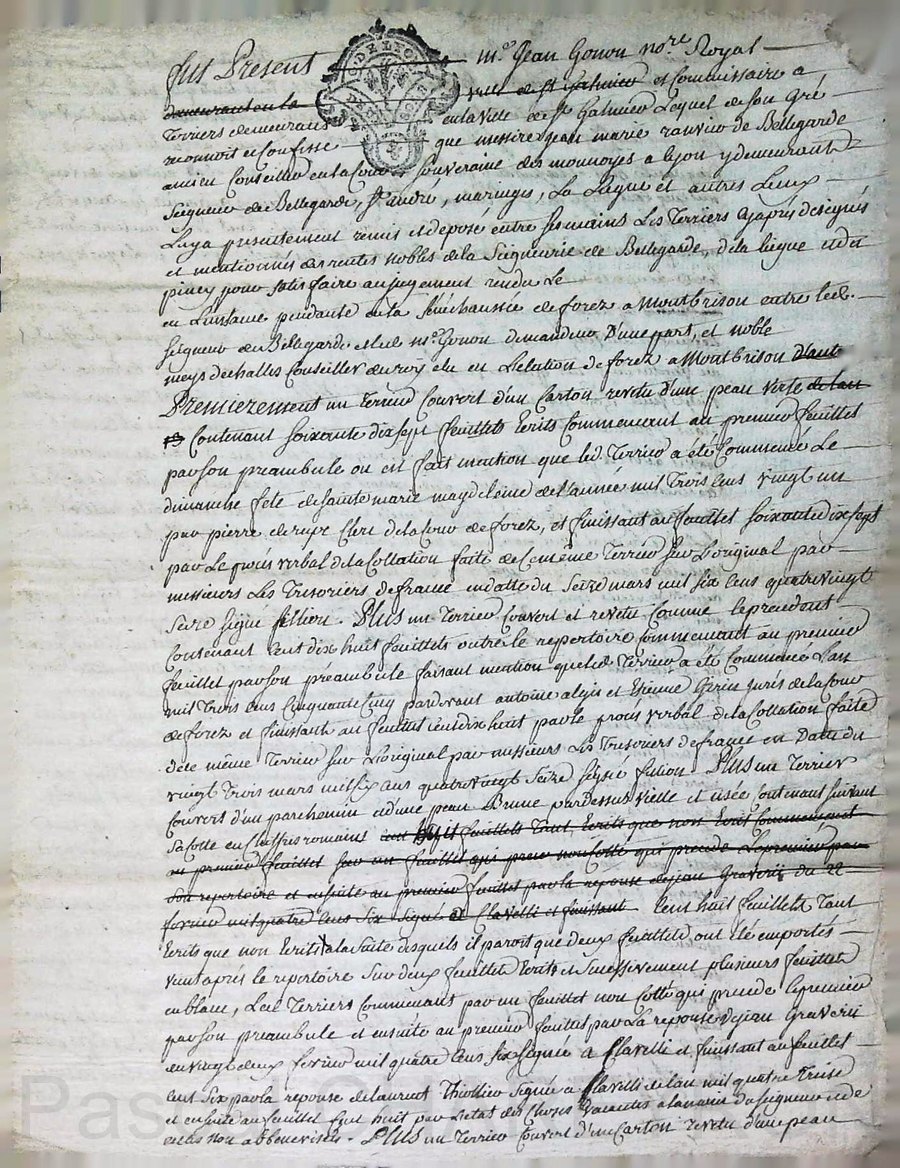 fut Present m.e Jean Gonon no.re Royal
demeurant en la ville de st Galmier et Commissaire a
Terriers demeurant en la ville de st Galmier Lequel de son Gré
reconnoit et Confesse que messire Jean marie ranvier de Bellegarde
ancien Conseiller en la Cour Souveraine des monnoyes a lyon y demeurant
Seigneur de Bellegarde, st andré, maringes, La Liegue et autres Lieux
Luy a presentement remis et deposé entre ses mains Les Terriers cy après designés
et mentionnés des rentes nobles de la Seigneurie de Bellegarde, de la liegue et du
piney pour satisfaire au jugement rendu Le
en L'instance pendante en la Sénéchaussée de forez a Montbrison entre led.
seigneur de Bellegarde et led. m.e Gonon demandeur D'une part, et noble
meys dechalles Conseiller du roy elu en L'election de forez a Montbrison d'aut
Premierement un Terrier Couvert d'un Carton revetu d'une peau verte de lan
13 Contenant soixante dix sept feuillets Ecrits Commencant au premier feuillet
par son preambule ou est fait mention que led. Terrier a été Commencé Le
dimanche fete de sainte marie magdeleine de l'année mil Trois Cens vingt un
par pierre de rupe Clerc de la Cour de forez, et finissant au feuillet soixante dix sept
par Le procés verbal de la Collation faite de Ce même Terrier sur L'original par
messieurs Les Tresoriers de france en datte du seize mars mil six Cens quatre vingt
seize signé fillion. Plus un Terrier Couvert et revetu Comme le precedent
Contenant Cent dix huit feuillets outre le repertoire Commencant au premier
feuillet par son préambule faisant mention que led. Terrier a été Commencé L'an
mil Trois Cens Cinquante Cinq pardevant antoine et Etienne Jurés de la Cour
de forez et finissant au feuillet cent dix huit par le procès verbal de la Collation faite
de ce même Terrier sur L'original par messieurs Les Tresoriers de france en Datte du
vingt Trois mars mil six Cens quatre vingt Seize signé fillion Plus un Terrier
Couvert d'un parchemin et d'une peau Brune par dessus vielle et usée Contenant suivant
sa Cotte en Chiffres romains cent huit feuillets Tant Ecrits que non Ecrit Commencant
au premier feuillet sur un feuillet qui non Cotté qui precede Le premier par
son repertoire et ensuite au premier feuillet par la reponse de jean Graverii du 22
fevrier mil quatre Cens Six Signé Clavelli et finissant Cent huit feuillets Tant
Ecrits que non Ecrits a la suite desquels il paroit que deux feuillets ont été emportés
vient après le repertoire sur deux feuillets Ecrits et successivement plusieurs feuillets
en blanc, Led. Terriers Commencant par un feuillet non Cotté qui precede Lepremier
par son preambule et ensuite au premier feuillet par La reponse de jean Graverii
du vingt deux fevrier mil quatre Cens Six signée a Clavelli et finissant au feuillet
Cent Six par la reponse de laurent Thiollier signée a Clavelli de lan mil quatre Treise
et ensuite au feuillet Cent huit par L'etat des Choses vacantes a la main du seigneur et de
celles non abbenevisées. Plus un Terrier Couvert d'un Carton revetu d'une peau